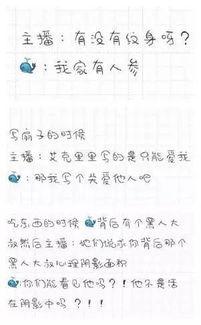 主播：有没有纹身呀？
：我家有人参
写扇子的时候
主播：艾克里里写的是只能爱我
：那我写个关爱他人吧
吃东西的时候 背后有个黑人大
叔然后主播：她们说求你背后那个
黑人大叔心理阴影面积
：你们能看见他吗？！他不是活
在阴影中吗？！！